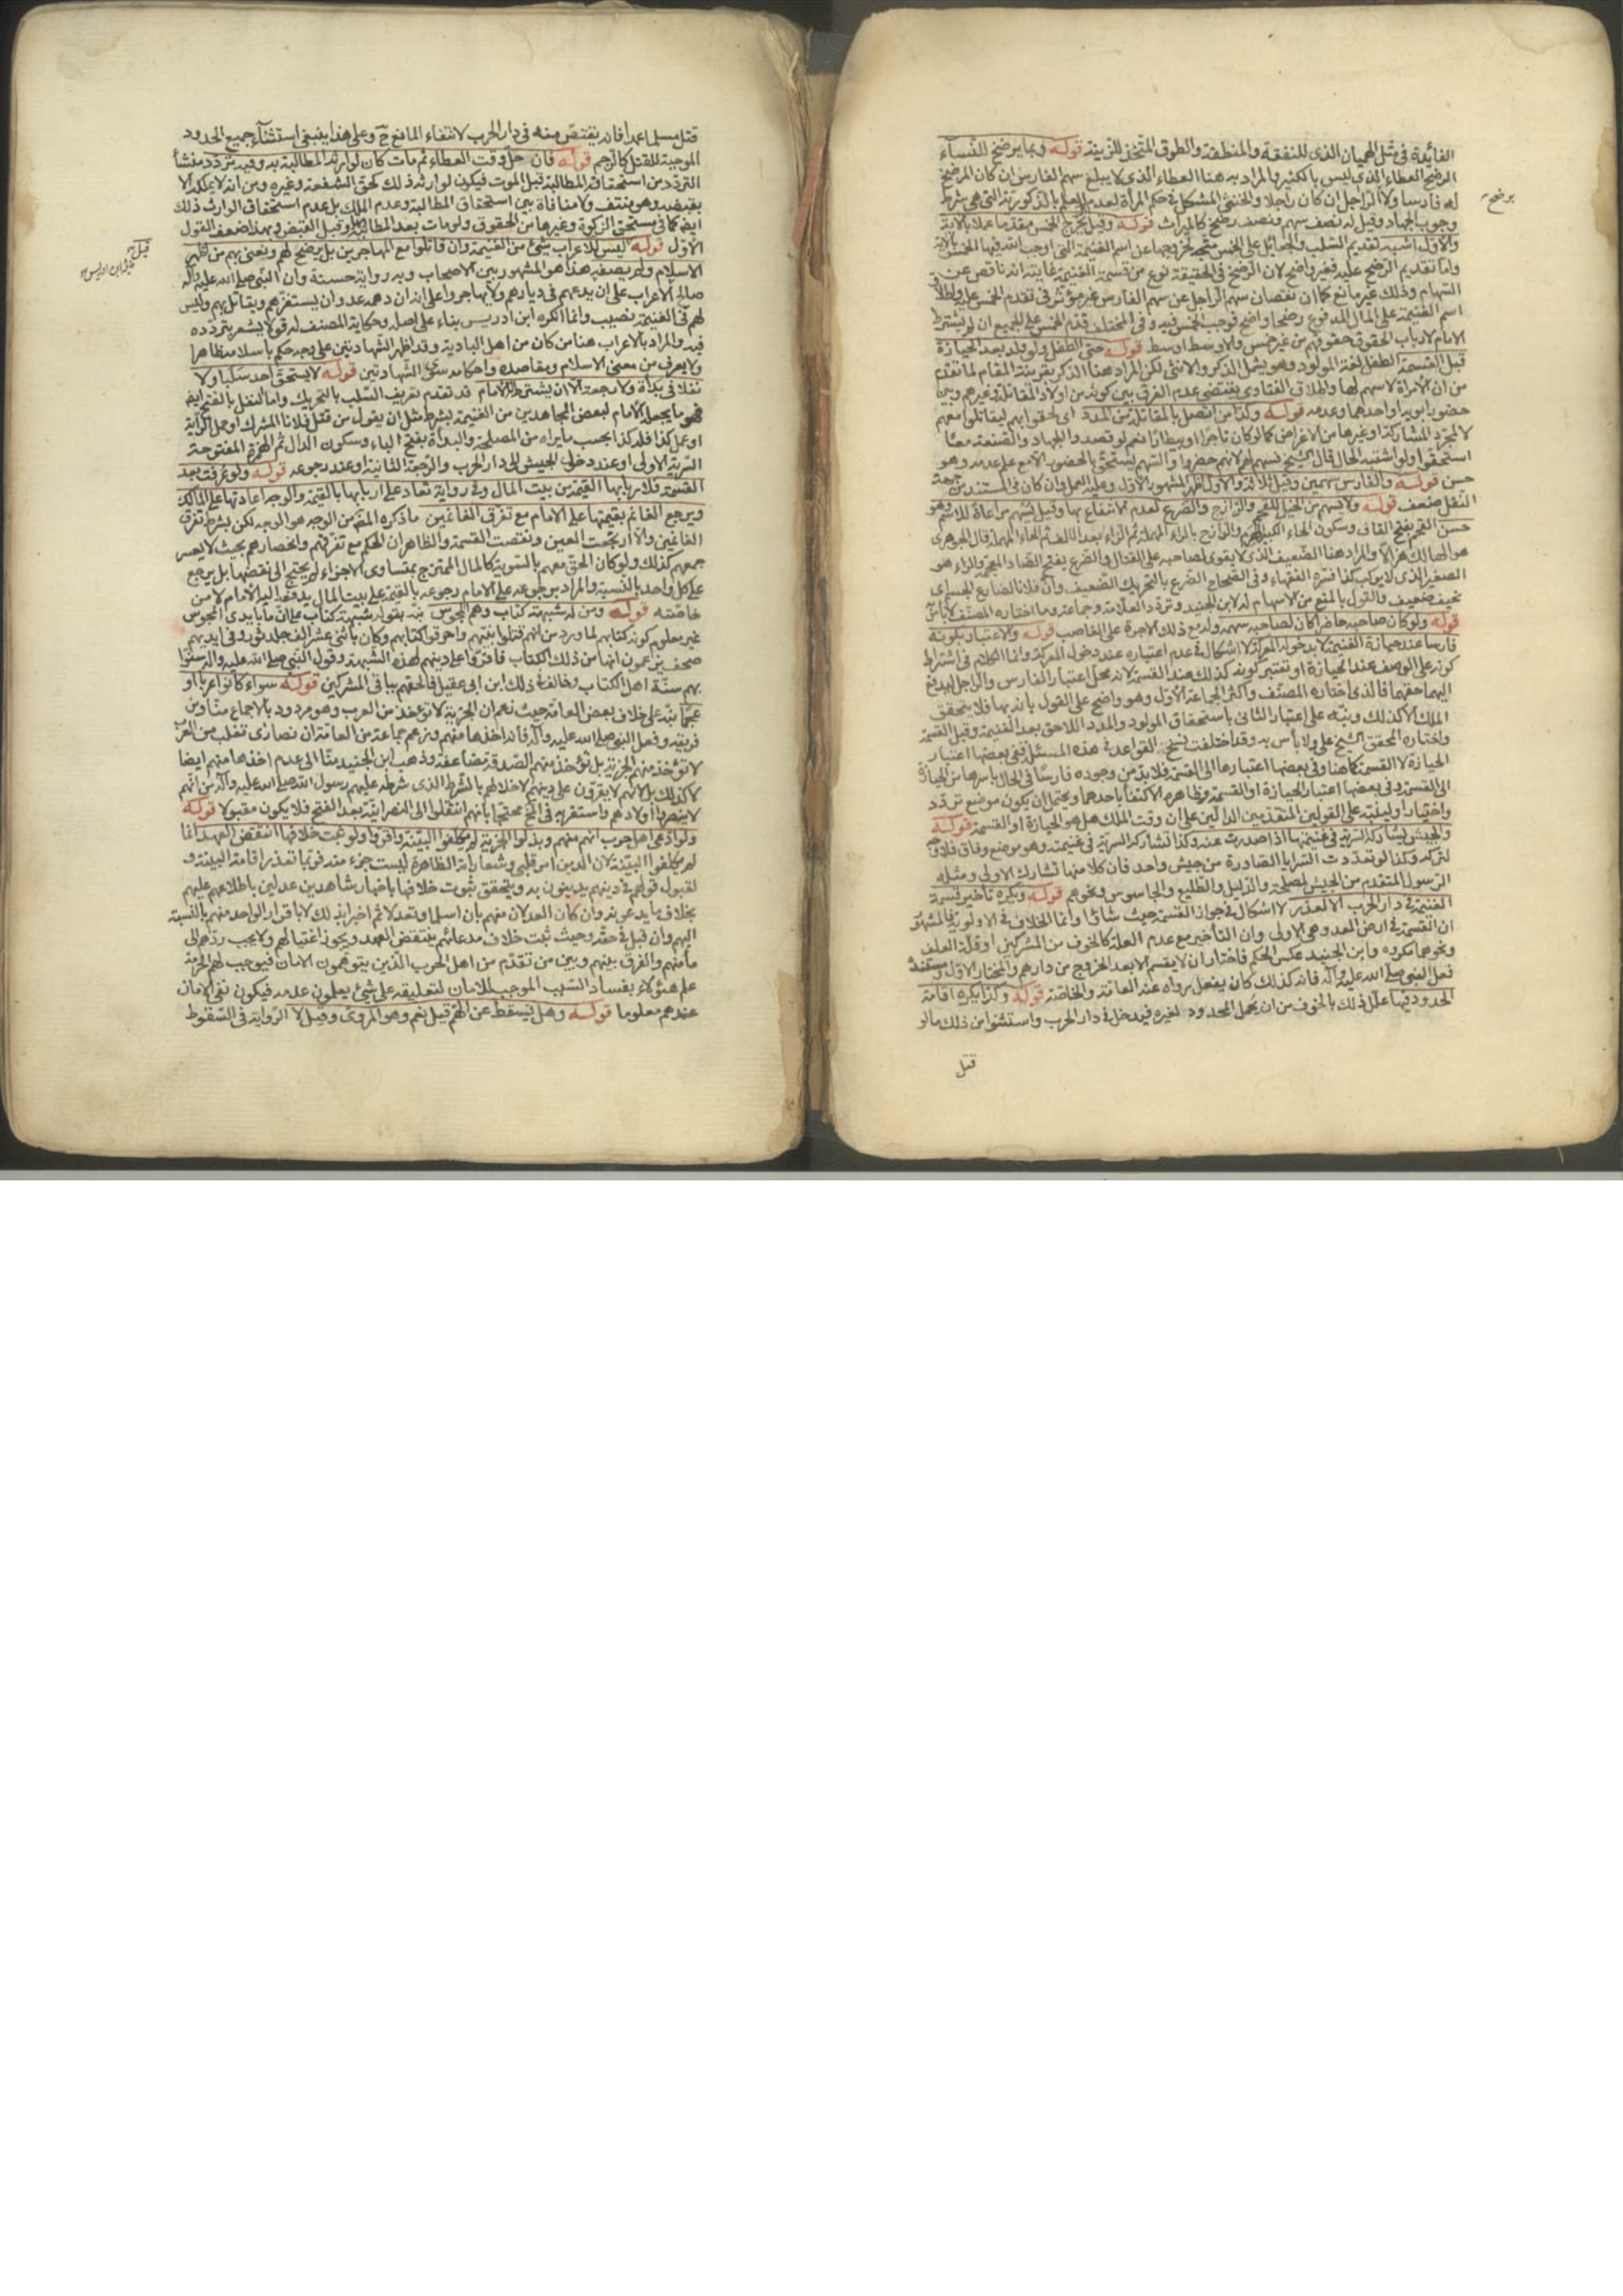 الفائدة في مثل الهميان الذى للنفقة والمنطقة والطوق المتخذ للزينة قوله وبما يرضخ للنساء
الرضخ العطاء الذي ليس بالكثير والمراد به هنا العطاء الذى لا يبلغ سهم الفارس ان كان المرضخ
له فارسا ولا الراجل ان كان راجلا والخنثى المشكل في حكم المرأة لعدم العلم بالذكورية التي هي شرط
وجوب الجهاد وقيل له نصف سهم ونصف رضخ كالميراث قوله وقيل يخرج الخمس مقدما عملا بالآية
والاول اشبه تقديم السلب والجعائل على الخمس متجه لخروجها عن اسم الغنيمة التي اوجب الله فيها الخمس بالآية
واما تقديم الرضخ عليه فغير واضح لان الرضخ في الحقيقة نوع من قسمة الغنيمة غايته انه ناقص عن
السهام وذلك غير مانع كما ان نقصان سهم الراجل عن سهم الفارس غير مؤثر في تقدم الخمس عليه ولطلاق
اسم الغنيمة على المال المدفوع رضخا واضح فوجب الخمس فيه وفي المختلف قدم الخمس على الجميع ان لم يشترط
الامام لارباب الحقوق حقوقهم من غير خمس والاوسط اوسط قوله حتى الطفل ولو ولد بعد الحيازة
قبل القسمة الطفل لغة المولود وهو يشمل الذكر والانثى لكن المراد هنا الذكر بقرينة المقام لما تقدم
من ان الامراة لا سهم لها واطلاق الفتاوى يقتضي عدم الفرق بين كونه من اولاد المقاتلة وغيرهم وبين
حضور ابويه او احدهما وعدمه قوله وكذا من اتصل بالمقاتلة من المدد اى لحقوا بهم ليقاتلوا معهم
لا لمجرد المشاركة او غيرها من الاغراض كما لو كان تاجرا او بيطارا نعم لو قصد والجهاد والصنعة معا
استحقوا ولو اشتبه الحال قال الشيخ يسهم لهم لانهم حضروا والسهم يستحق بالحضور الامع علم عدمه وهو
حسن قوله وللفارس سهمين وقيل ثلاثة والاول اظهر المشهور الاول وعليه العمل وان كان في مستنده من جهة
النقل ضعف قوله ولا يسهم من الخيل للقحم والرازح والضرع لعدم الانتفاع بها وقيل يسهم مراعاة للاسم وهو
حسن القحم بفتح القاف وسكون الحاء الكبير الهرم والرازح بالراء المهملة ثم الزاء بعد الالف ثم الحاء المهملة قال الجوهرى
هو الهالك هزالا والمراد هنا الضعيف الذى لا يقوى لصاحبه على القتال والضرع بفتح الضاد المعجمة والراء هو
الصغير الذى لا يركب كذا فسره الفقهاء وفي الصحاح الضرع بالتحريك الضعيف وان فلانا لضارع الجسم اى
نحيف ضعيف والقول بالمنع من الاسهام له لابن الجنيد وتردد العلامة وجماعة وما اختاره المصنف لا بأس
قوله ولو كان صاحبه حاضرا كان لصاحبه سهمه وله مع ذلك الاجرة على الغاصب قوله والاعتبار بكونه
فارسا عند حيازة الغنيمة لا بدخوله المعركة لا اشكال في عدم اعتباره عند دخول المعركة وانما الكلام في اشتراط
كونه على الوصف عند الحيازة او تعتبر كونه كذلك عند القسمة لانه محل اعتبار الفارس والراجل ليدفع
اليهما حقهما فالذى اختاره المصنف واكثر الجماعة الاول وهو واضح على القول بانه بها فلا يتحقق
الملك الا كذلك وينبه على اعتبار الثاني باستحقاق المولود والمدد اللاحق بعد الغنيمة وقبل القسمة
واختاره المحقق الشيخ على ولا بأس به وقد اختلفت نسخ القواعد في هذه المسئلة ففى بعضها اعتبار
الحيازة لا القسمة كما هنا وفي بعضها اعتبارها الى القسمة فلا بد من وجوده فارسا في الحال باسرها من الحيازة
الى القسمة وفي بعضها اعتبار الحيازة او القسمة وظاهره الاكتفا باحدهما ويحتمل ان يكون موضع تردد
واختيارا وليبنيه على القولين المتقدمين الدالين على ان وقت الملك هل هو الحيازة او القسمة قوله
والجيش يشارك السرية في غنيمتها اذا صدرت عنه وكذا تشاركه السرية في غنيمته وهو موضع وفاق فلا وجه
لتركه وكذا لو تعددت السرايا الصادرة من جيش واحد فان كلا منها تشارك الاولى ومثله
الرسول المتقدم من الجيش لمصلحة والدليل والطليع والجاسوس ونحوهم قوله ويكره تأخير قسمة
الغنيمة في دار الحرب الا لعذر لا اشكال في جواز القسمة حيث شاؤا وانما الخلاف في الاولوية فالمشهور
ان القسمة في ارض العدو هي الاولى وان التأخير مع عدم العلة كالخوف من المشركين او قلة العلف
ونحوهما مكروه وابن الجنيد عكس الحكم فاختار ان لا يقسم الا بعد الخروج من دارهم والمختار الاول ومستنده
فعل النبي صلى الله عليه وآله فانه كذلك كان يفعل رواه عنه العامة والخاصة قوله وكذا يكره اقامة
الحدود فيها علل ذلك بالخوف من ان يحمل المحدود لغيره فيدخل في دار الحرب واستثنوا من ذلك ما لو
قتل
يرضخ
قتل مسلما عمدا فانه يقتص منه في دار الحرب لانتفاء المانع ح وعلى هذا ينبغي استثناء جميع الحدود
الموجبة للقتل كالرجم قوله فان حل وقت العطاء ثم مات كان لوارثه المطالبة به وفيه تردد منشأ
التردد من استحقاقه المطالبة قبل الموت فيكون لوارثه ذلك كحق الشفعة وغيره ومن انه لا يملكه الا
بقبضه وهو منتف ولا منافاة بين استحقاق المطالبة وعدم الملك بل عدم استحقاق الوارث ذلك
ايضا كما في مستحق الزكوة وغيرها من الحقوق ولو مات بعد المطالبة وقبل القبض وبهذا ضعف القول
الاول قوله ليس للاعراب شيئ من الغنيمة وان قاتلوا مع المهاجرين بل يرضخ لهم ويعنى بهم من اظهر
الاسلام ولم يصفه هذا هو المشهور بين الاصحاب وبه رواية حسنة وان النبي صلى الله عليه وآله
صالح الاعراب على ان يدعهم في ديارهم ولا يهاجروا على انه ان دهمه عدو ان يستفزهم ويقاتل بهم وليس
لهم في الغنيمة نصيب وانما انكره ابن ادريس بناء على اصله وحكاية المصنف له قولا يشعر بتردده
فيه والمراد بالاعراب هنا من كان من اهل البادية وقد اظهر الشهادتين على وجه حكم باسلامه ظاهرا
ولا يعرف من معنى الاسلام ومقاصده واحكامه سوى الشهادتين قوله لا يستحق احد سلبا ولا
نفلا في بدأة ولا رجعة الا ان يشترط له الامام قد تقدم تعريف السلب بالتحريك واما النفل بالفتح ايضا
فهو ما يجعل الامام لبعض المجاهدين من الغنيمة بشرط مثل ان يقول من قتل فلانا المشرك او حمل الراية
او عمل كذا فله كذا بحسب ما يراه من المصلحة والبدأة بفتح الباء وسكون الدال ثم الهمزة المفتوحة
السرية الاولى او عند دخول الجيش الى دار الحرب والرجعة الثانية او عند رجوعه قوله ولو عرفت بعد
القسمة فلاربابها القيمة من بيت المال وفي رواية تعاد على اربابها بالقيمة والوجه اعادتها على المالك
ويرجع الغانم بقيمتها على الامام مع تفرق الغانمين ما ذكره المصنف من الوجه هو الوجه لكن بشرط تفرق
الغانمين والا ارتجعت العين ونقصت القسمة والظاهر ان الحكم مع تفرقهم وانحصارهم بحيث لا يعسر
جمعهم كذلك ولو كان الحق معهم بالسوية كالمال الممتزج بمتساوى الاجزاء لم يحتج الى نقضها بل يرجع
على كل واحد بالنسبة والمراد برجوعه على الامام رجوعه بالقيمة على بيت المال يدفعه اليه الامام لا من
خاصته قوله ومن له شبهة كتاب وهم المجوس نبه بقوله شبهة كتاب على ان ما بايدى المجوس
غير معلوم كونه كتابهم لما ورد من انهم قتلوا نبيهم واحرقوا كتابهم وكان باثنى عشر الف جلد ثور وفي ايديهم
صحف يزعمون انها من ذلك الكتاب فاقروا على دينهم لهذه الشبهة وقول النبي صلى الله عليه وآله سنوا
بهم سنة اهل الكتاب وخالف في ذلك ابن ابى عقيل فالحقهم بباقى المشركين قوله سواء كانوا عربا او
عجما نبه على خلاف بعض العامة حيث زعم ان الجزية لا تؤخذ من العرب وهو مردود بالاجماع منا ومن
فريقه وفعل النبي صلى الله عليه وآله فانه اخذها منهم وزعم جماعة من العامة ان نصارى تغلب من العرب
لا تؤخذ منهم الجزية بل تؤخذ منهم الصدقة مضاعفة وذهب ابن الجنيد منا الى عدم اخذها منهم ايضا
لا كذلك بل لانهم لا يقرون على دينهم لاخلالهم بالشرط الذى شرطه عليهم رسول الله صلى الله عليه وآله من انهم
لا ينصروا اولادهم واستقربه في المختلف محتجا بانهم انتقلوا الى النصرانية بعد الفتح فلا يكون مقبولا قوله
ولو ادعى اهل حرب انهم منهم وبذلوا الجزية لم يكلفوا البينة واقروا ولو ثبت خلافها انتقض العهد انما
لم يكلفوا البينة لان الدين امر قلبى وشعاراته الظاهرة ليست جزء منه فربما تعذر اقامة البينة و
لقبول قولهم في دينهم يدينون به ويتحقق ثبوت خلافها باخبار شاهدين عدلين باطلاعهم عليهم
بخلاف ما يدعونه وان كان العدلان منهم بان اسلما وتعدلا ثم اخبرا بذلك لا باقرار الواحد منهم بالنسبة
اليهم وان قبل في حقه وحيث ثبت خلاف مدعائهم ينتقض العهد ويجوز اغتيالهم ولا يجب ردهم الى
مأمنهم والفرق بينهم وبين من تقدم من اهل الحرب الذين يتوهمون الامان فيوجب لهم الحرمة
علم هؤلاء بفساد السبب الموجب للامان لتعليقه على شيئ يعلمون عدمه فيكون نفى الامان
عندهم معلوما قوله وهل يسقط عن الهم قيل نعم وهو المروى وقيل لا الرواية في السقوط